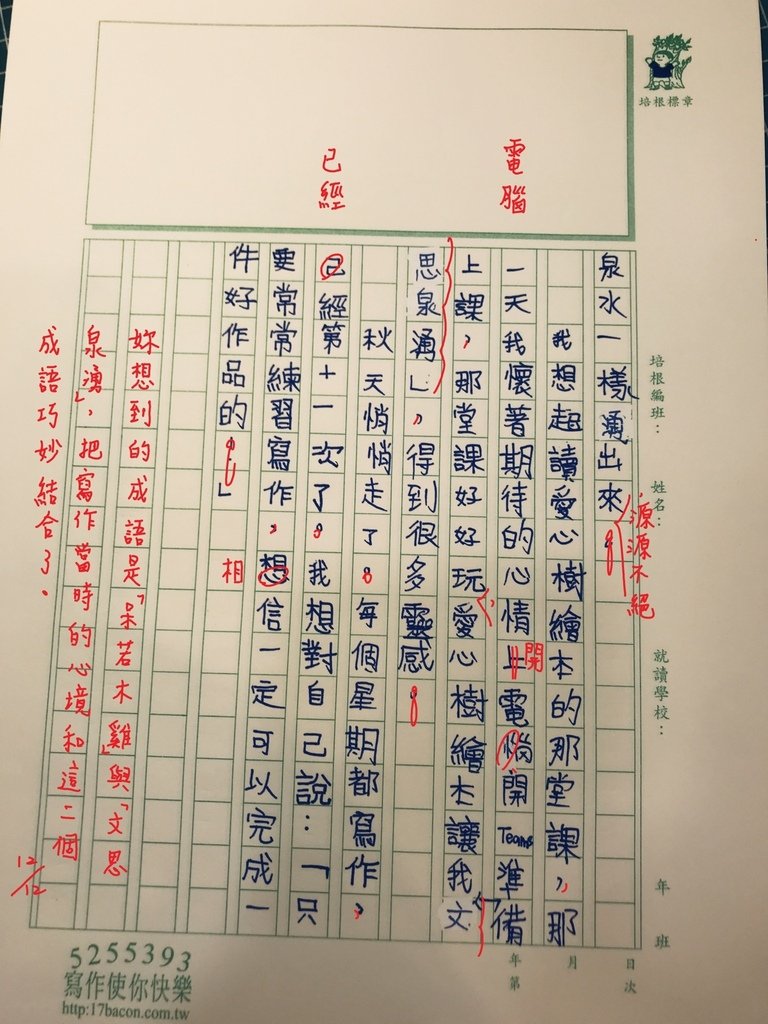 培根標章
電腦
已經
泉水一樣湧出來。
源源不絕
我想起讀愛心樹繪本的那堂課,那
一天我懷著期待的心情上電惱開Teams準備
開
上課,那堂課好好玩,愛心樹繪本讓我「文
思泉湧」,得到很多靈感。
秋天悄悄走了。每個星期都寫作,
己經第十一次了。我想對自己說:「只
要常常練習寫作,想信一定可以完成一
相
件好作品的。」
妳想到的成語是「呆若木雞」與「文思
泉湧」,把寫作當時的心境和這二個
成語巧妙結合了。
12/12
培根編班:
姓名:
就讀學校:
年 班
年 月 日
第 次
5255393
寫作使你快樂
http:17bacon.com.tw